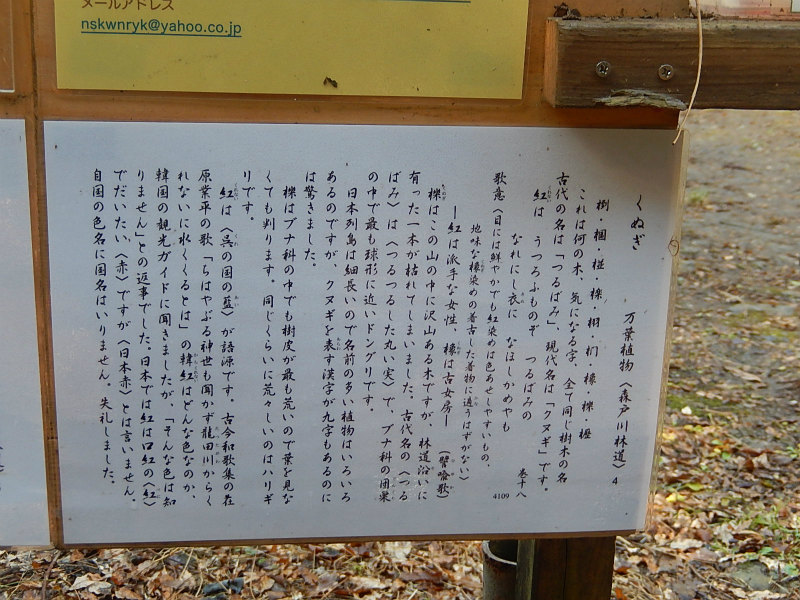 メールアドレス
nskwnryk@yahoo.co.jp
くぬぎ　万葉植物〈森戸川林道〉4
椡・椢・椪・櫟・栩・杤・橡・檪・櫪
これは何の木、気になる字、全て同じ樹木の名
古代の名は「つるばみ」、現代名は「クヌギ」です。
紅は　うつろふものぞ　つるばみの
なれにし衣に　なほしかめやも　巻十八 4109
歌意〈目には鮮やかでも紅染めは色あせしやすいもの、
地味な橡染めの着古した着物に適うはずがない〉
―紅は派手な女性、橡は古女房―　（譬喩歌）
櫟はこの山の中に沢山ある木ですが、林道沿いに
有った一本が枯れてしまいました。古代名の〈つる
ばみ〉は〈つるつるした丸い実〉で、ブナ科の団栗
の中で最も球形に近いドングリです。
日本列島は細長いので名前の多い植物はいろいろ
あるのですが、クヌギを表す漢字が九字もあるのに
は驚きました。
櫟はブナ科の中でも樹皮が最も荒いので葉を見な
くても判ります。同じくらいに荒々しいのはハリギ
リです。
紅は〈呉の国の藍〉が語源です。古今和歌集の在
原業平の歌「ちはやぶる神世も聞かず龍田川からく
れないに水くくるとは」の韓紅はどんな色なのか、
韓国の観光ガイドに聞きましたが、「そんな色は知
りません」との返事でした。日本では紅は口紅の〈紅〉
でだいたい、〈赤〉ですが〈日本赤〉とは言いません。
自国の色名に国名はいりません。失礼しました。